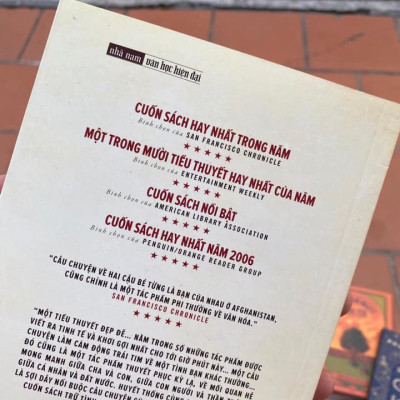 nhã nam văn học hiện đại
CUỐN SÁCH HAY NHẤT TRONG NĂM
Bình chọn của SAN FRANCISCO CHRONICLE
MỘT TRONG MƯỜI TIỂU THUYẾT HAY NHẤT CỦA NĂM
Bình chọn của ENTERTAINMENT WEEKLY
CUỐN SÁCH NỔI BẬT
Bình chọn của AMERICAN LIBRARY ASSOCIATION
CUỐN SÁCH HAY NHẤT NĂM 2006
Bình chọn của PENGUIN/ORANGE READER GROUP
"CÂU CHUYỆN VỀ HAI CẬU BÉ TỪNG LÀ BẠN CỦA NHAU Ở AFGHANISTAN,
CŨNG CHÍNH LÀ MỘT TÁC PHẨM PHI THƯỜNG VỀ VĂN HÓA."
SAN FRANCISCO CHRONICLE
"MỘT TIỂU THUYẾT ĐẸP ĐẼ... NẰM TRONG SỐ NHỮNG TÁC PHẨM ĐƯỢC
VIẾT RA TINH TẾ VÀ KHƠI GỢI NHẤT CHO TỚI GIỜ PHÚT NÀY... MỘT CÂU
CHUYỆN LÀM CẢM ĐỘNG TRÁI TIM VỀ MỘT TÌNH BẠN KHÁC THƯỜNG...
ĐÓ CŨNG LÀ MỘT TÁC PHẨM THUYẾT PHỤC KỲ LẠ, VỀ MỐI QUAN HỆ
MONG MANH GIỮA CHA VÀ CON, GIỮA CON NGƯỜI VÀ THẦN
GIỮA CÁ NHÂN VÀ ĐẤT NƯỚC. HUYẾT THỐNG CŨNG
LÀ SỢI DÂY NỐI BUỘC CÂU CHUYỆN
CUỐN SÁCH TRỮ TÌNH